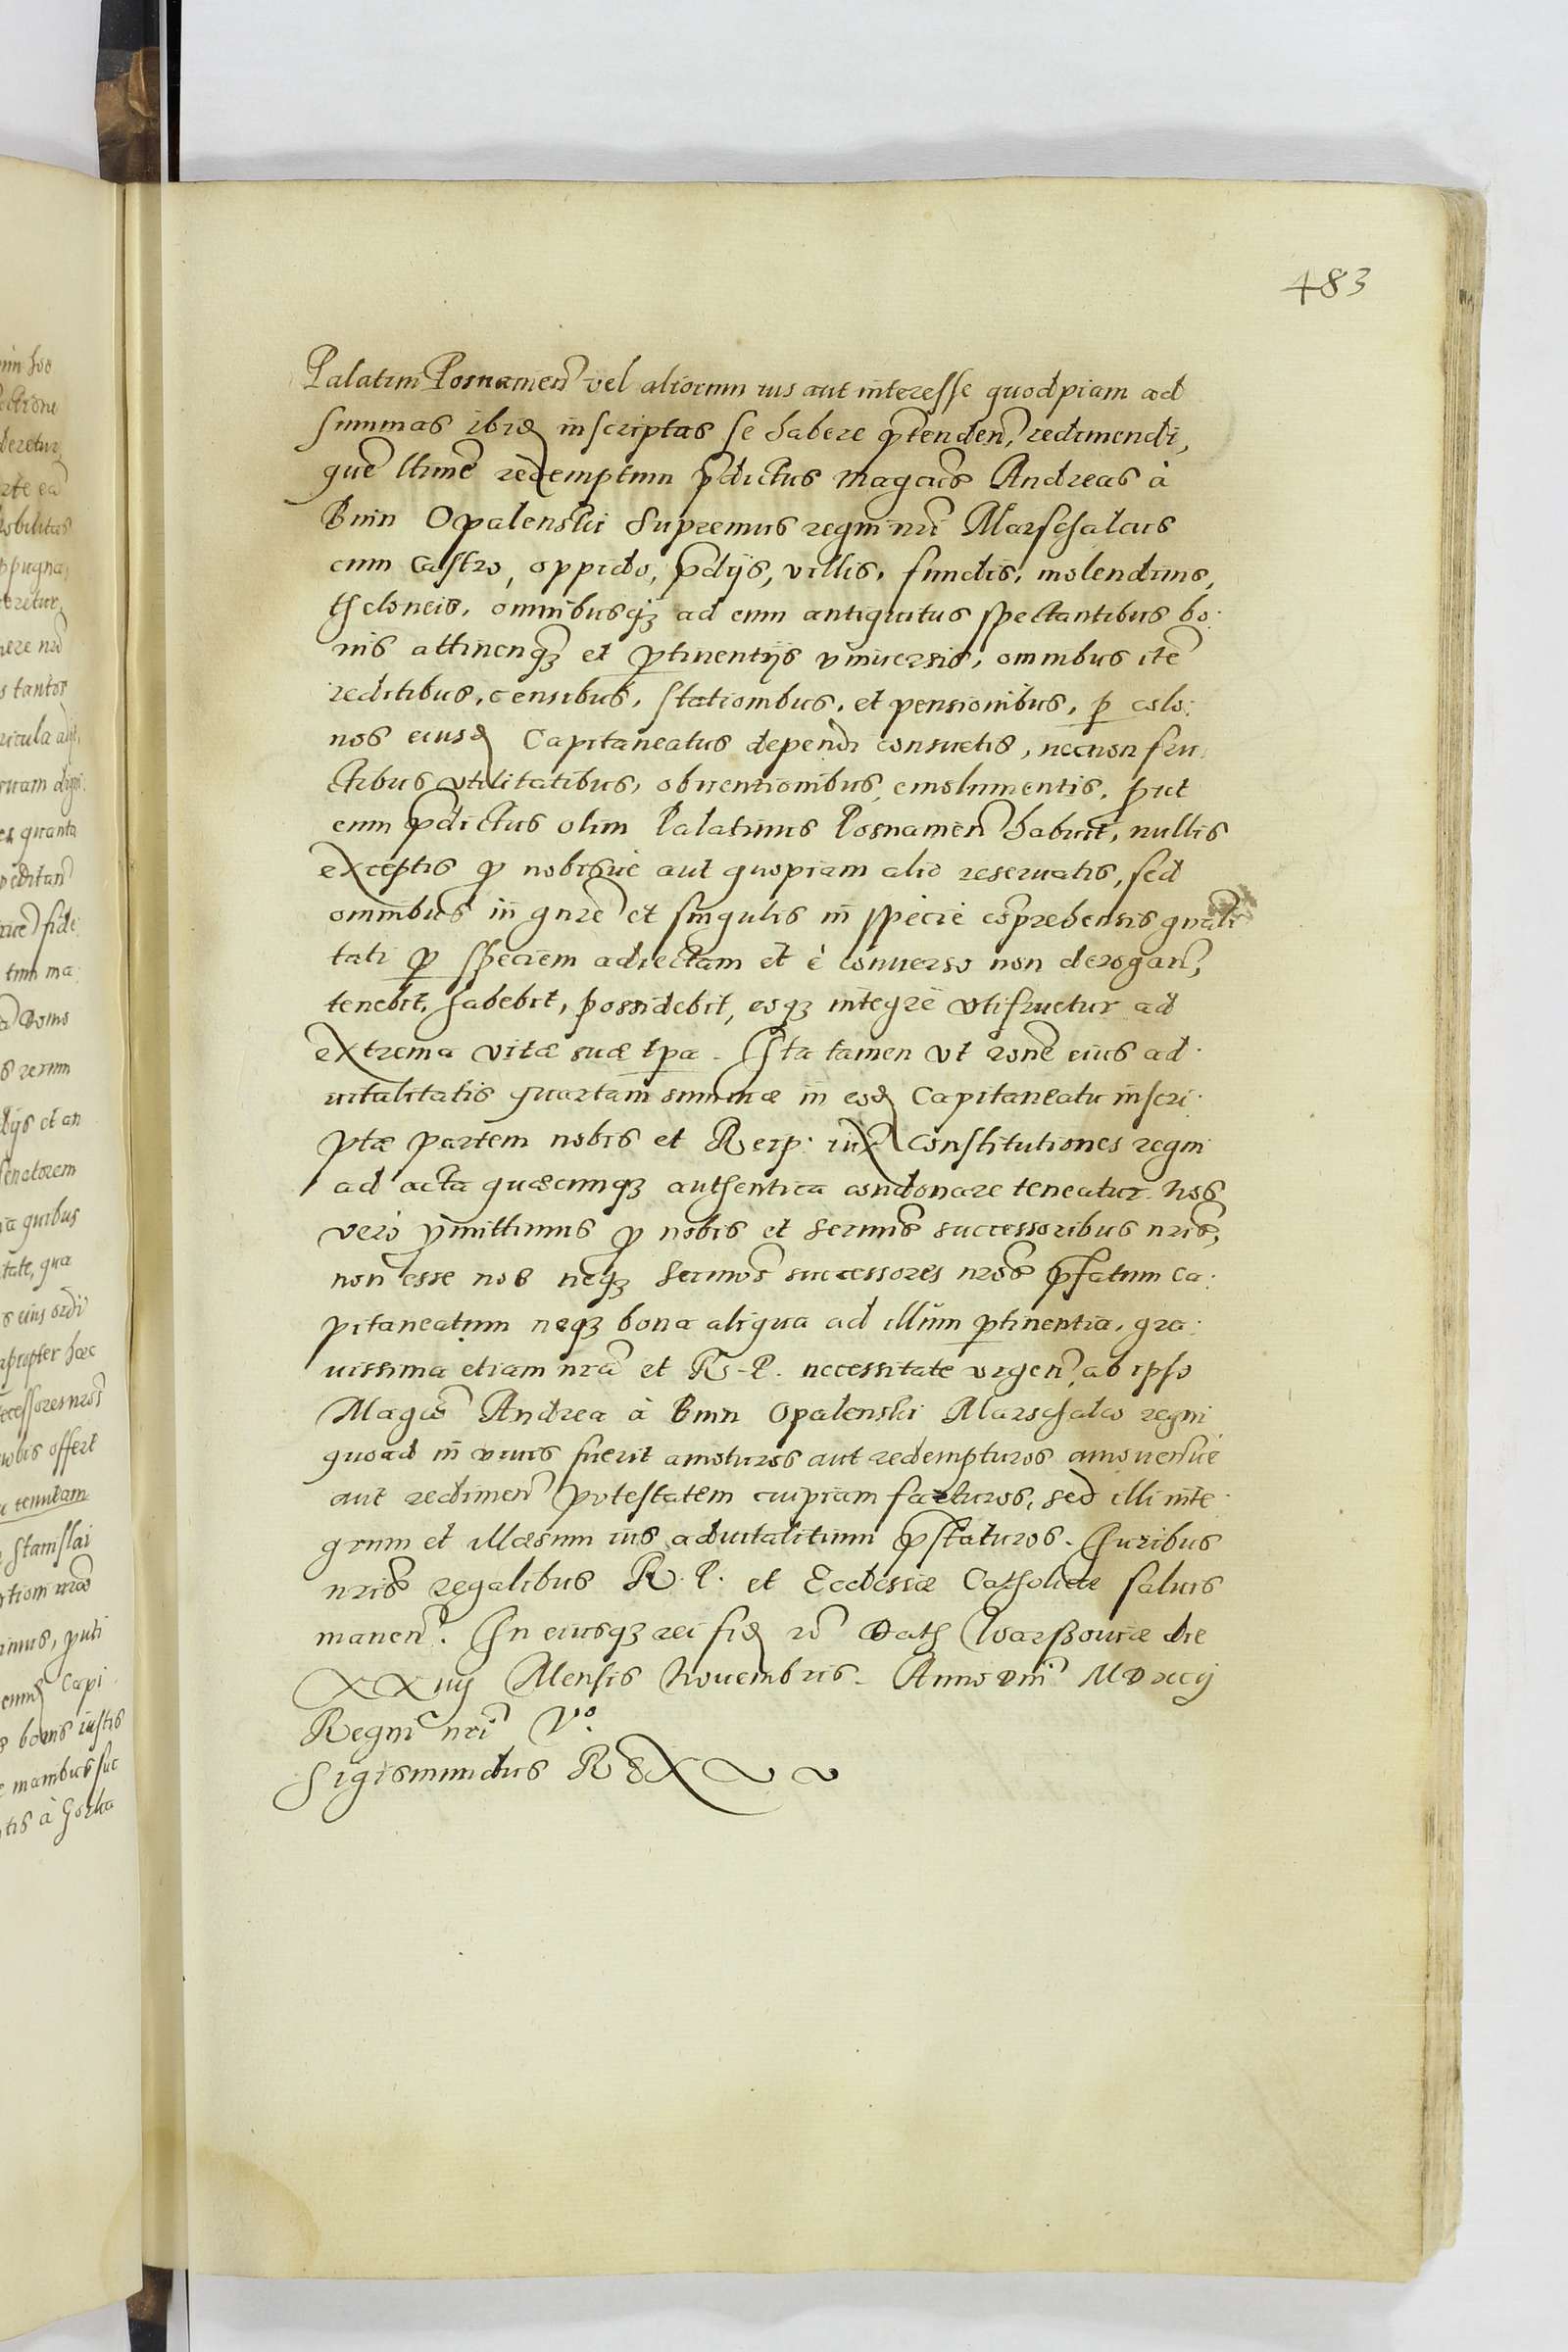 483
Palatini Posnamen̄ vel aliorum ius aut interesse quodpiam ad
summas ibid inscriptas se habere p̄tenden̄, redimendi,
quē redemptum p̄dictus Magcūs Andreas à
Bnin Opalenskii Supremus regni nrī Marschalcus
cum Castro, oppido, p̄dijs, villis, fundis, molendinis,
theloneis, omnibusqȝ ad eum antiquitus spectantibus bo:
nis attinenqȝ et ptinentijs vniuersis, omnibus itē
reditibus, censibus, stationibus, et pensionibus, p colo:
nos eiusd Capitaneatus dependi consuetis, necnon fru:
ctibus vtilitatibus, obuentionibus, emolumentis, put
eum p̄dictus olim Palatinus Posnamen̄ habuit, nullis
exceptis p nobisue aut quopiam alio reseruatis, sed
omnibus in gnrē et singulis in specie cōprehensis gnāli
tati p speciem adiectam et è conuerso non derogan̄,
tenebit, habebit, possidebit, eoqȝ integrè vtifruetur ad
extrema vitæ suæ tpa. Ita tamen vt ronē eius ad:
uitalitatis quartam summæ in eod Capitaneatu inscri:
ptæ partem nobis et Reip: iux Constitutiones regni
ad acta quæcunqȝ authentica condonare teneatur. Nos
verò pmittimus p nobis et sermīs successoribus nrīs,
non esse nos neqȝ sermos successores nros p̄fatum Ca:
pitaneatum neqȝ bona aliqua ad illum ptinentia, gra:
uissima etiam nrā et R. P. necessitate vrgen̄, ab ipso
Magcō Andrea à Bnin Opalenskii Marschalco regni
quoad in viuis fuerit amoturos aut redempturos amouensue
aut redimen̄ potestatem cuipiam facturos, sed illi inte:
grum et illæsum ius aduitalitium p̄staturos. Iuribus
nrīs regalibus R. P. et Ecclesiæ Catholicæ saluis
manen̄. In eiusqȝ rei fid Dat Warssouiæ die
XXiiij Mensis Nouembris. Anno Dnī MDxcij
Regni nrī Vᵒ.
Sigismundus REX